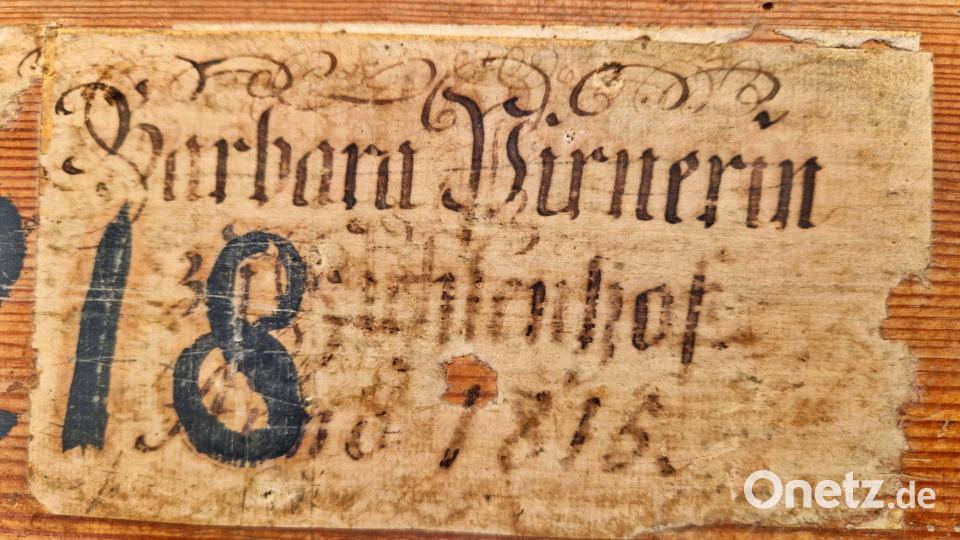 Barbara Pirnerin
18
Anno 1815.
Onetz.de